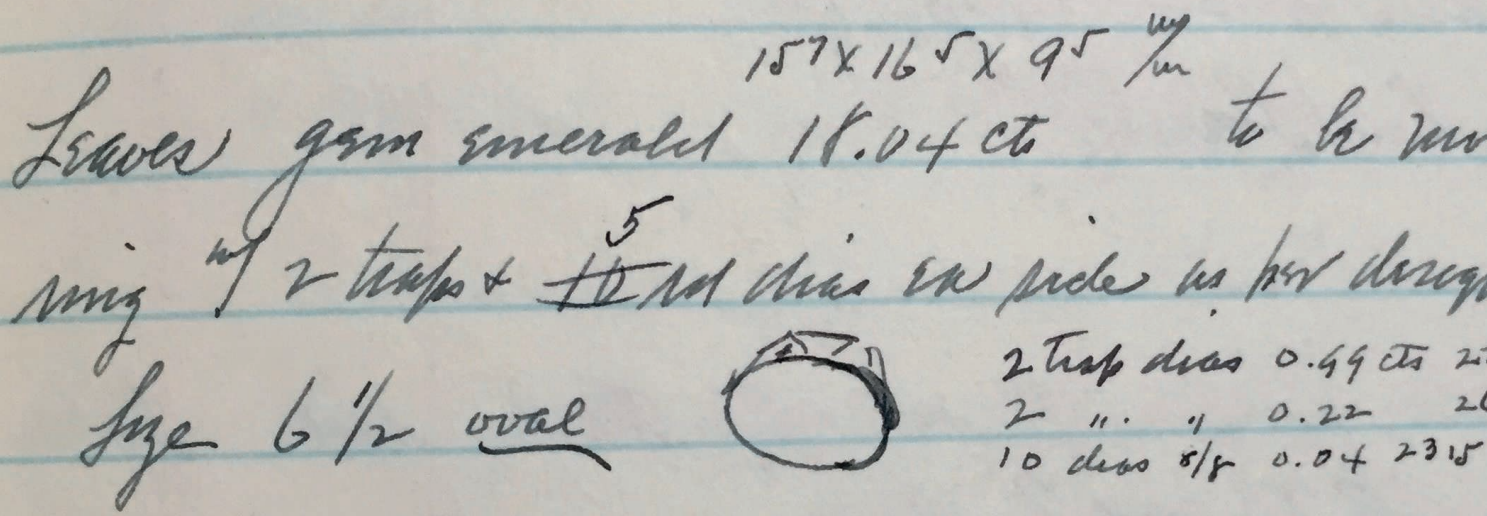 15⁷ x 16⁵ x 9⁵ m/m
Leaves gem emerald 18.04 cts to be
5
ring w/ 2 traps + 10 rd dias ea side as per
Size 6 1/2 oval
2 trap dias 0.49 cts
2 " " 0.22
10 dias 8/8 0.04 2315